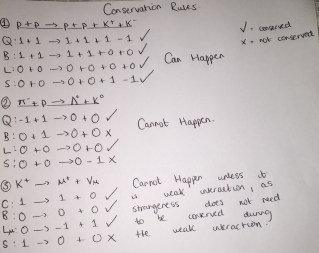 Conservation Rules
① p + p → p + p + K⁺ + K⁻
✓ = conserved
x = not conserved
Q: 1 + 1 → 1 + 1 + 1 - 1 ✓
B: 1 + 1 → 1 + 1 + 0 + 0 ✓
Can Happen
L: 0 + 0 → 0 + 0 + 0 + 0 ✓
S: 0 + 0 → 0 + 0 + 1 - 1 ✓
② π⁻ + p → Λ⁰ + K⁰
Q: -1 + 1 → 0 + 0 ✓
B: 0 + 1 → 0 + 0 x
Cannot Happen.
L: 0 + 0 → 0 + 0 ✓
S: 0 + 0 → 0 - 1 x
③ K⁺ → μ⁺ + Vμ
C: 1 → 1 + 0 ✓
B: 0 → 0 + 0 ✓
Lμ: 0 → -1 + 1 ✓
S: 1 → 0 + 0 x
Cannot Happen unless it
is weak interaction, as
strangeness does not need
to be conserved during
the weak interaction.